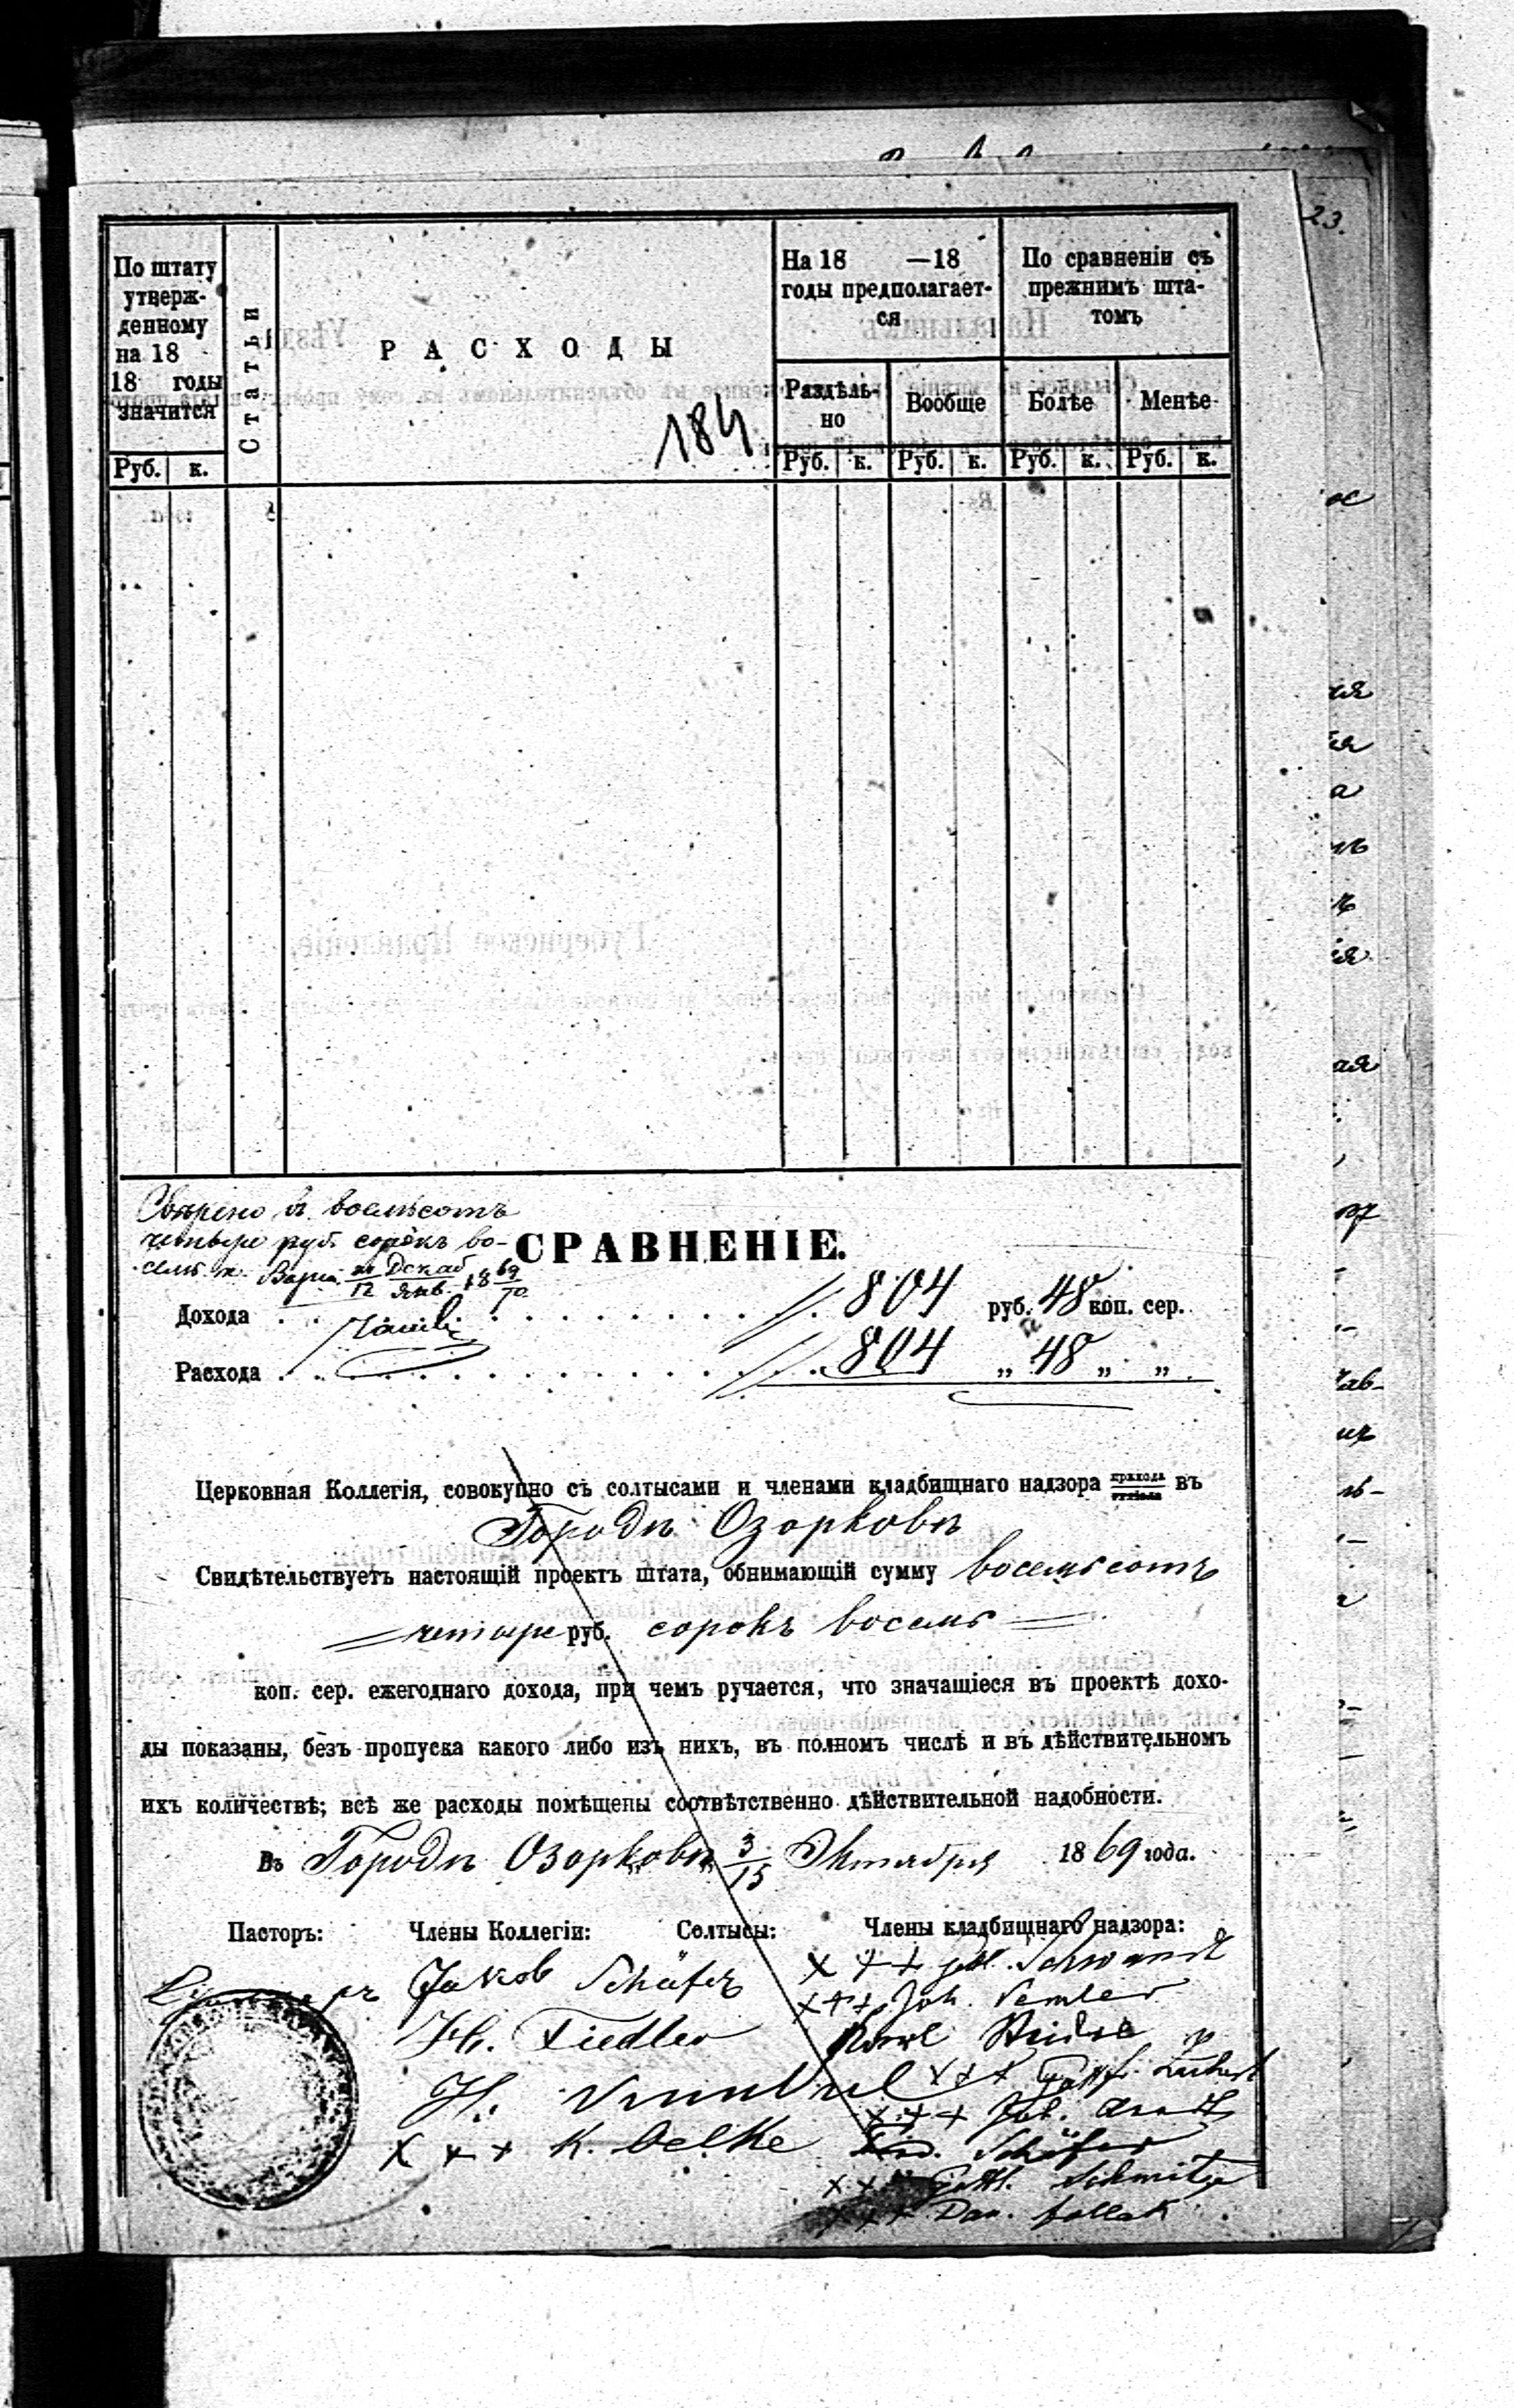 23.
По штату
утверж-
денному
на 18
18 годы
значится
Статьи
РАСХОДЫ
184
На 18 —18
годы предполагает-
ся
По сравненіи съ
прежнимъ шта-
томъ
Раздѣль-
но
Вообще
Болѣе
Менѣе
Руб. к.
Руб. к. Руб. к. Руб. к. Руб. к.
восемьсотъ
четыре руб. сорокъ во-
семь к.
СРАВНЕНІЕ.
Дохода 804 руб. 48 коп. сер.
Расхода 804 „ 48 „ „
Церковная Коллегія, совокупно съ солтысами и членами кладбищнаго надзора прихода въ
Городѣ Озорковѣ
Свидѣтельствуетъ настоящій проектъ штата, обнимающій сумму восемьсотъ
четыре руб. сорокъ восемь
коп. сер. ежегоднаго дохода, при чемъ ручается, что значащіеся въ проектѣ дохо-
ды показаны, безъ пропуска какого либо изъ нихъ, въ полномъ числѣ и въ дѣйствительномъ
ихъ количествѣ; всѣ же расходы помѣщены соотвѣтственно дѣйствительной надобности.
Въ Городѣ Озорковѣ 3/15 Октября 1869 года.
Пасторъ: Члены Коллегіи: Солтысы: Члены кладбищнаго надзора:
Jakob Schäfer
H. Fiedler
x x x K. Oelke
x x x Gottl. Schwandt
x x x Joh. Semler
x x x
x x x Joh. Arndt
Schäfer
Gottl. Schmitge
Dan. Pollak